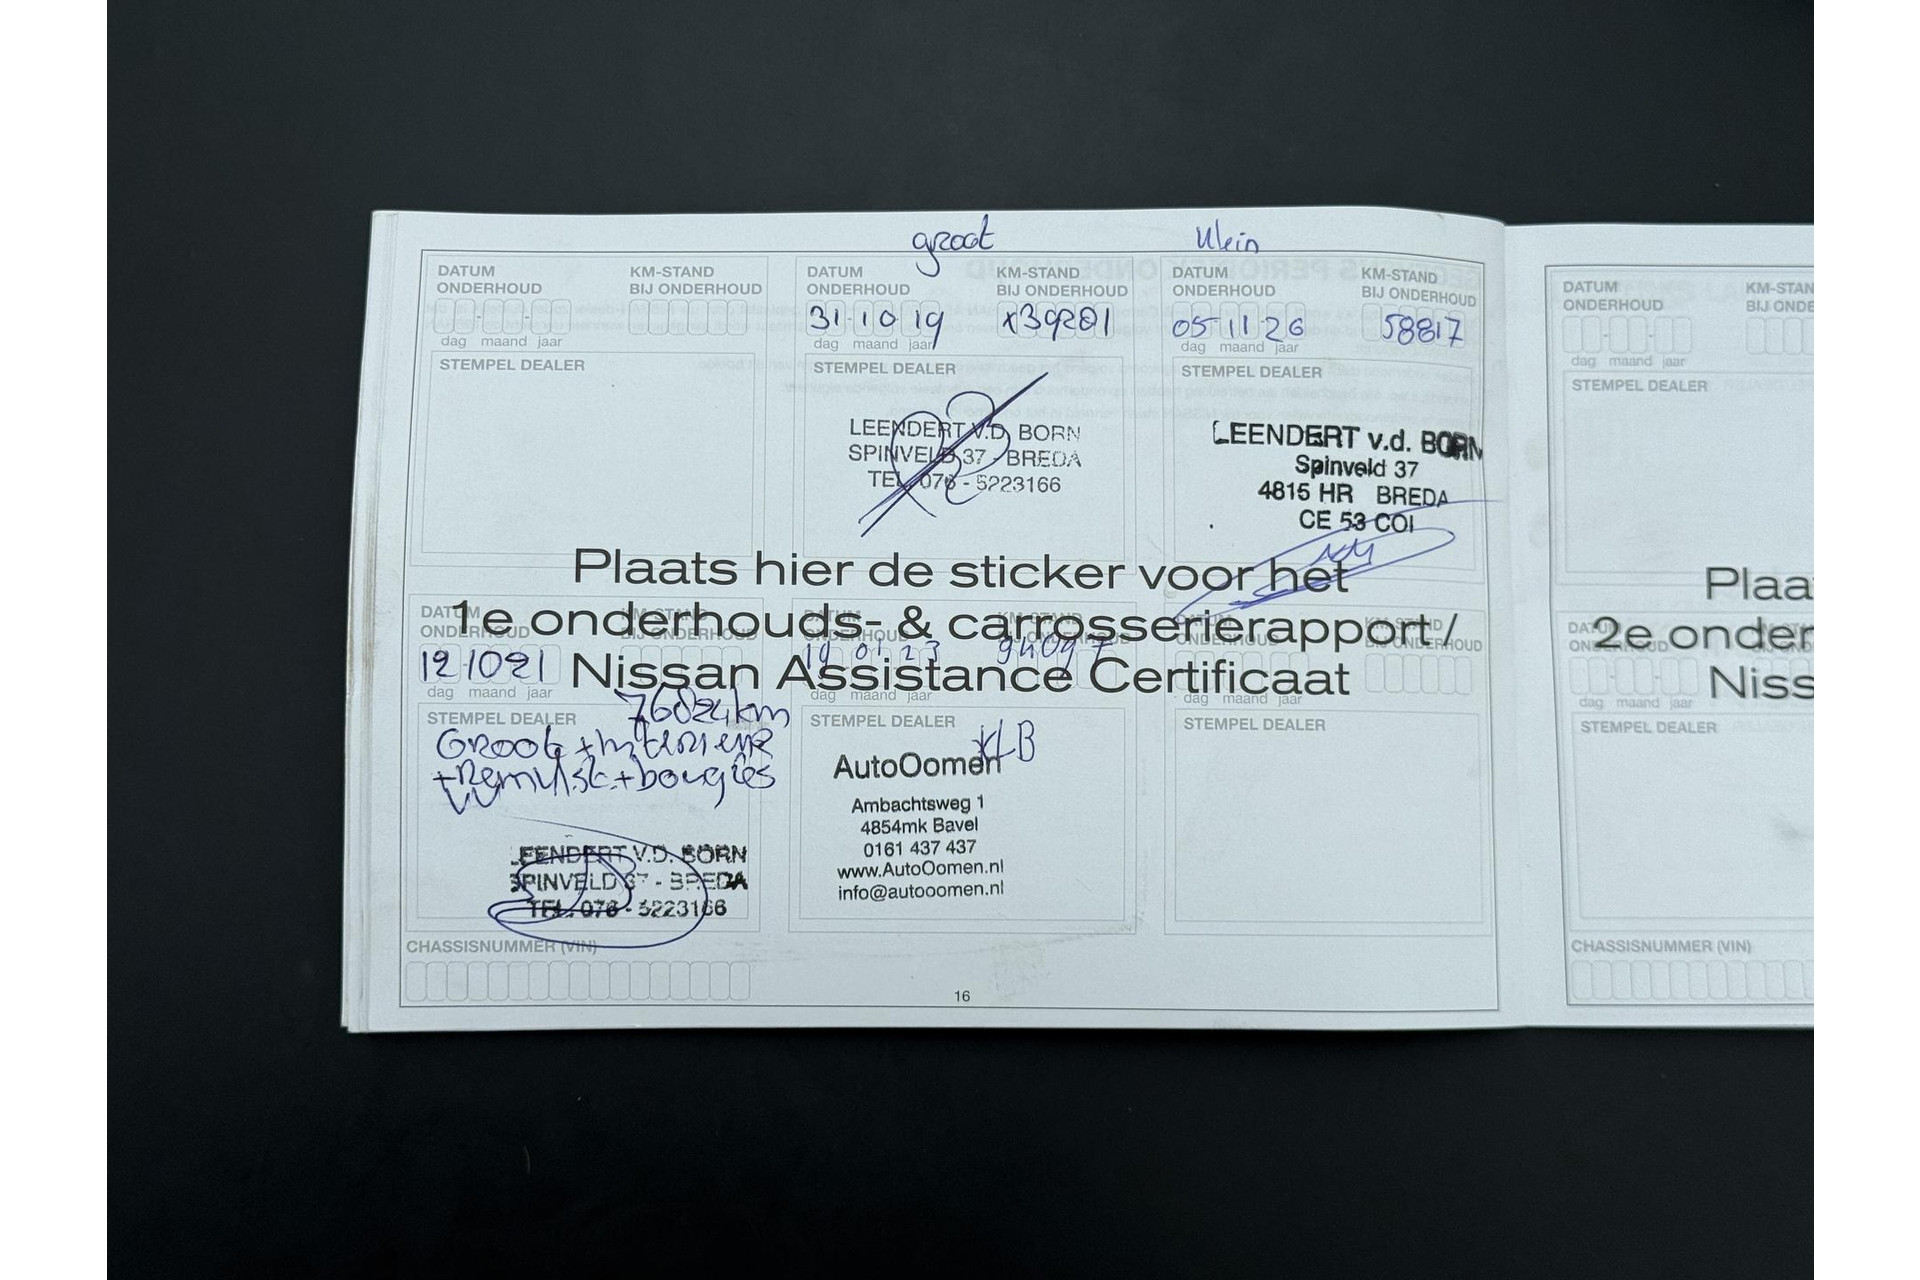 groot
klein
DATUM ONDERHOUD
KM-STAND BIJ ONDERHOUD
dag maand jaar
STEMPEL DEALER
DATUM ONDERHOUD
KM-STAND BIJ ONDERHOUD
31 10 19
x39201
dag maand jaar
STEMPEL DEALER
LEENDERT V.D. BORN
SPINVELD 37 - BREDA
TEL. 076 - 5223166
DATUM ONDERHOUD
KM-STAND BIJ ONDERHOUD
05 11 20
58817
dag maand jaar
STEMPEL DEALER
LEENDERT v.d. BORN
Spinveld 37
4815 HR BREDA
CE 53 COI
Plaats hier de sticker voor het
1e onderhouds- & carrosserierapport/
Nissan Assistance Certificaat
DATUM ONDERHOUD
KM-STAND BIJ ONDERHOUD
12 10 21
dag maand jaar
76824km
STEMPEL DEALER
Groot + interieur
+ Remvlst. + bougies
LEENDERT V.D. BORN
SPINVELD 37 - BREDA
TEL. 076 - 5223166
DATUM ONDERHOUD
KM-STAND BIJ ONDERHOUD
19 01 23
94097
dag maand jaar
STEMPEL DEALER
AutoOomen
Ambachtsweg 1
4854mk Bavel
0161 437 437
www.AutoOomen.nl
info@autooomen.nl
DATUM ONDERHOUD
KM-STAND BIJ ONDERHOUD
dag maand jaar
STEMPEL DEALER
CHASSISNUMMER (VIN)
16
DATUM ONDERHOUD
KM-STAN
BIJ ONDE
dag maand jaar
STEMPEL DEALER
Plaa
2e onder
Niss
DATUM ONDERHOUD
dag maand jaar
STEMPEL DEALER
CHASSISNUMMER (VIN)